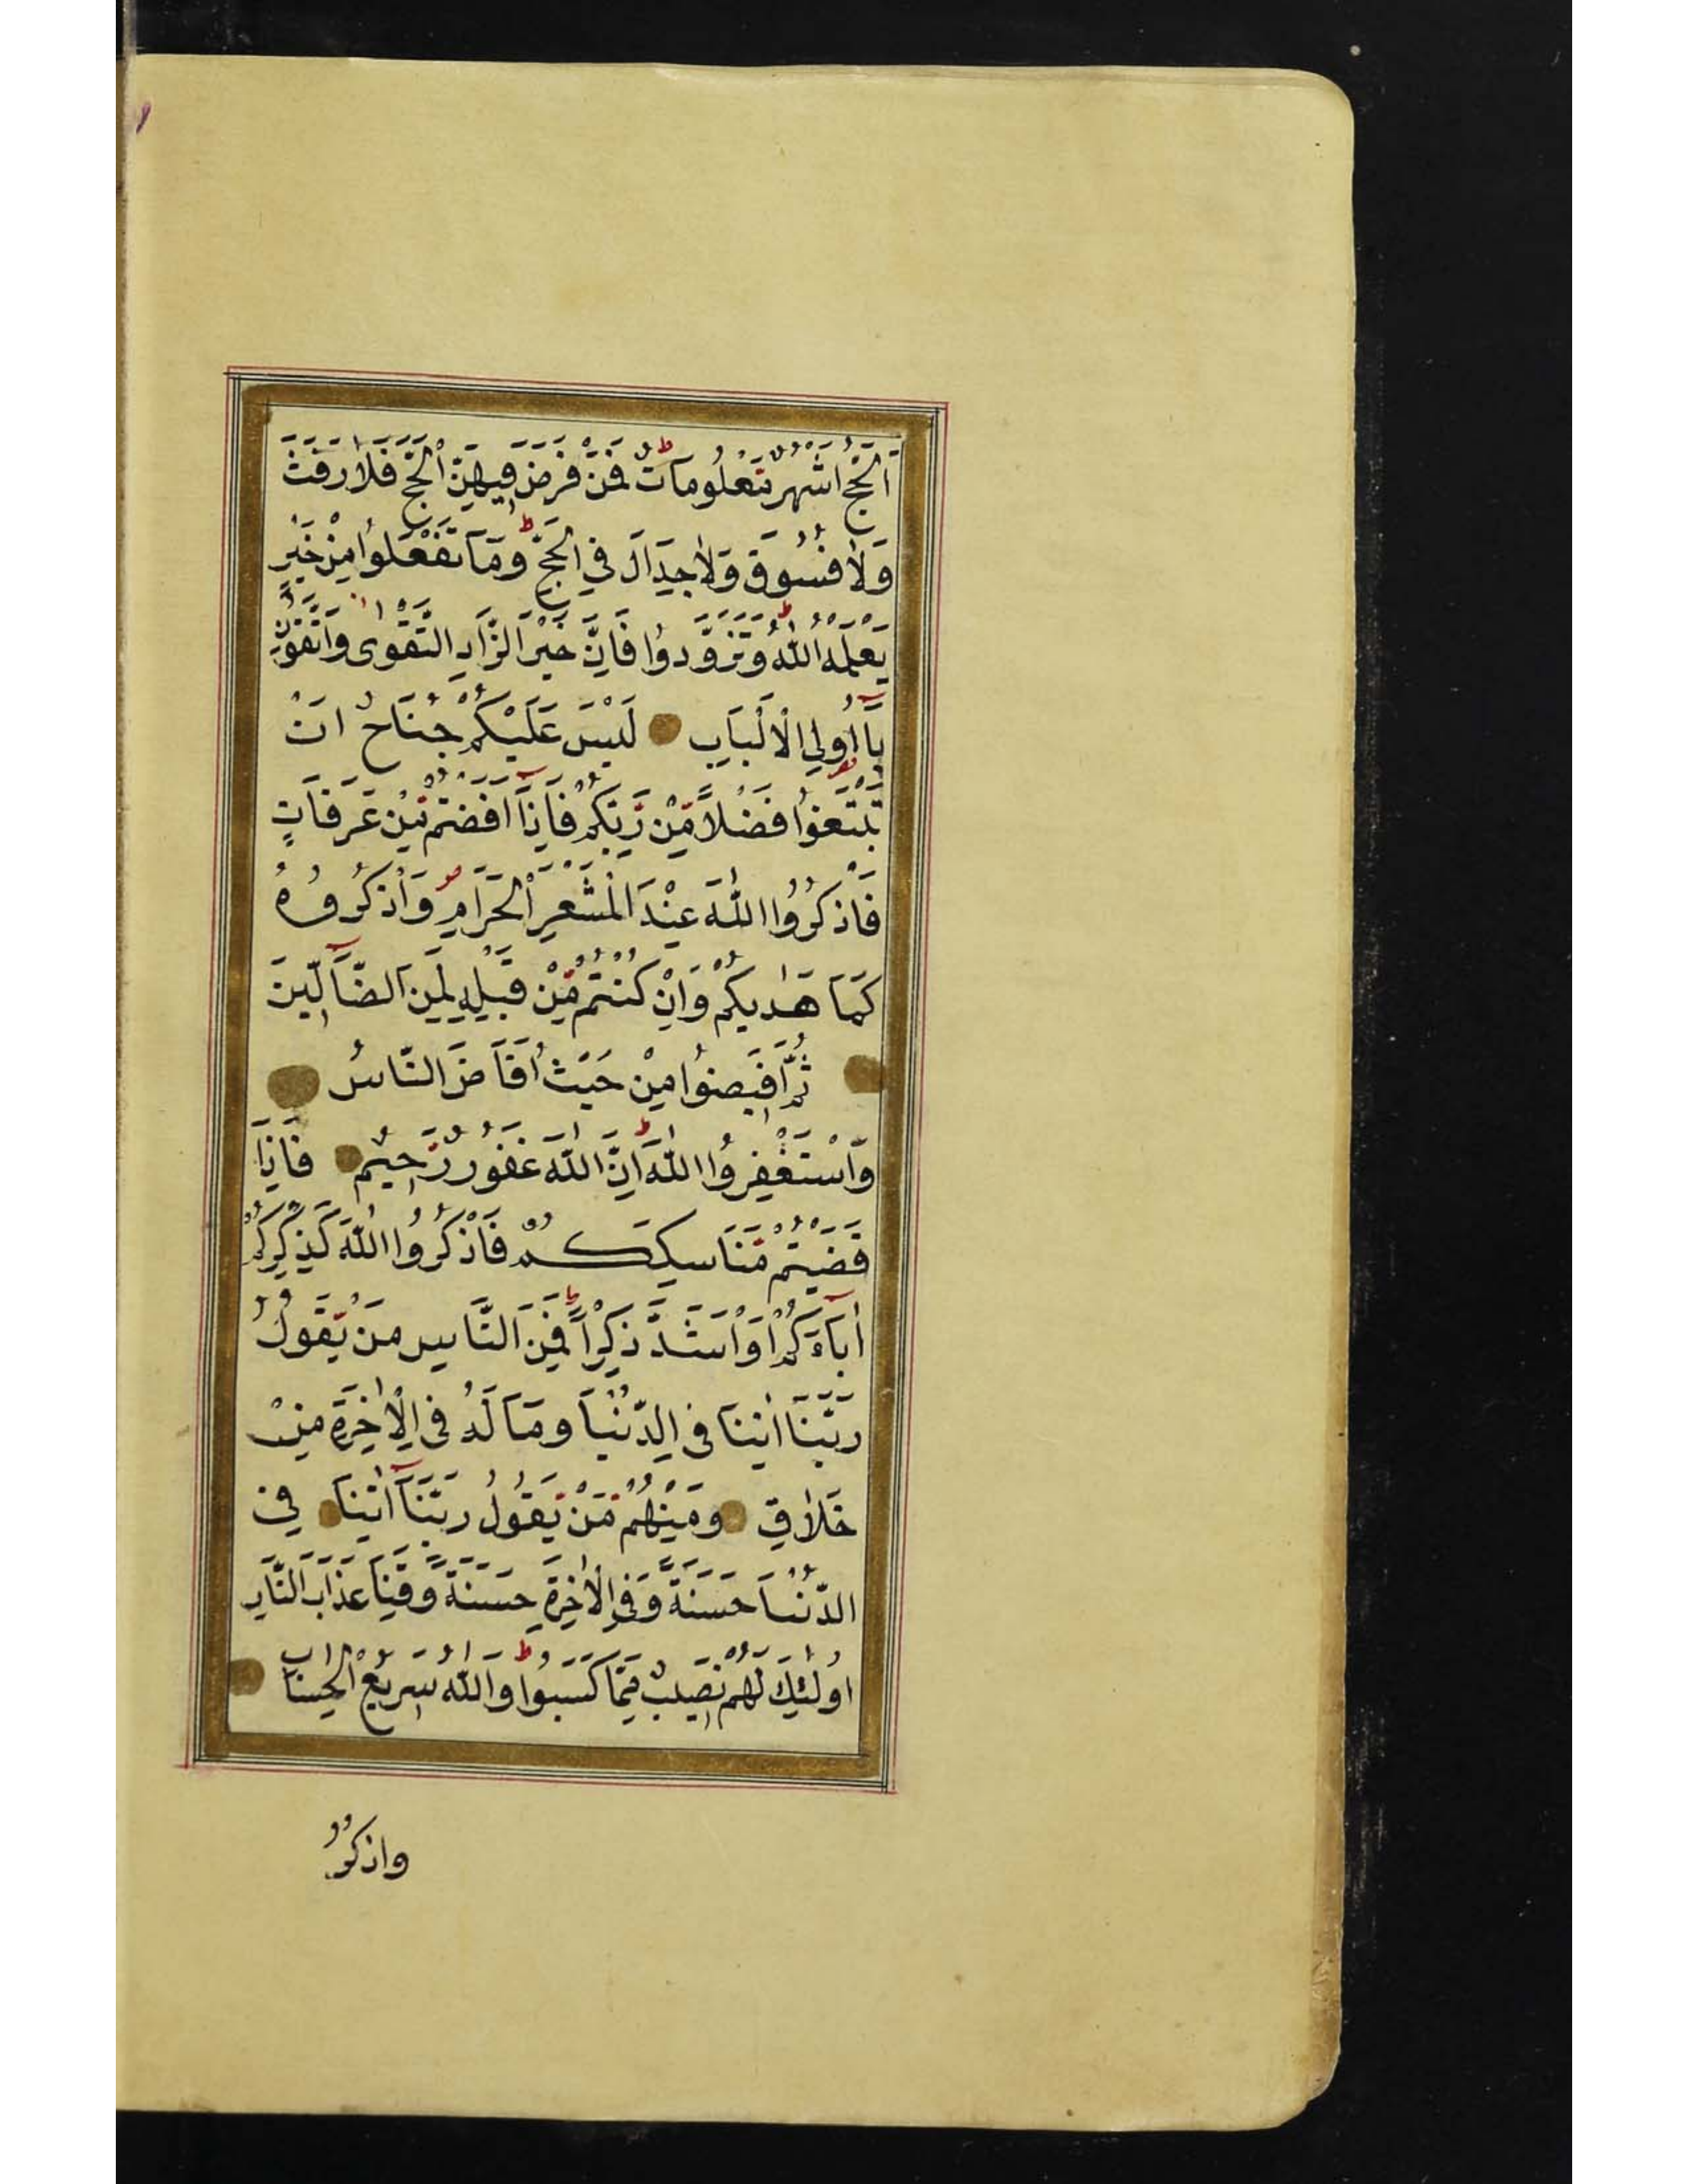 اَلْحَجُّ اَشْهُرٌ مَّعْلُومَاتٌ ط فَمَنْ فَرَضَ فِيهِنَّ الْحَجَّ فَلَا رَفَثَ
وَلَا فُسُوقَ وَلَا جِدَالَ فِي الْحَجِّ ط وَمَا تَفْعَلُوا مِنْ خَيْرٍ
يَعْلَمْهُ اللّٰهُ ط وَتَزَوَّدُوا فَاِنَّ خَيْرَ الزَّادِ التَّقْوٰى وَاتَّقُونِ
يَآ اُولِي الْاَلْبَابِ لَيْسَ عَلَيْكُمْ جُنَاحٌ اَنْ
تَبْتَغُوا فَضْلًا مِّنْ رَّبِّكُمْ فَاِذَآ اَفَضْتُمْ مِّنْ عَرَفَاتٍ
فَاذْكُرُوا اللّٰهَ عِنْدَ الْمَشْعَرِ الْحَرَامِ ص وَاذْكُرُوهُ
كَمَا هَدٰيكُمْ وَاِنْ كُنْتُمْ مِّنْ قَبْلِهِ لَمِنَ الضَّآلِّينَ
ثُمَّ اَفِيضُوا مِنْ حَيْثُ اَفَاضَ النَّاسُ
وَاسْتَغْفِرُوا اللّٰهَ ط اِنَّ اللّٰهَ غَفُورٌ رَّحِيمٌ فَاِذَا
قَضَيْتُمْ مَّنَاسِكَكُمْ فَاذْكُرُوا اللّٰهَ كَذِكْرِكُمْ
اٰبَآءَكُمْ اَوْ اَشَدَّ ذِكْرًا ط فَمِنَ النَّاسِ مَنْ يَّقُولُ
رَبَّنَا اٰتِنَا فِي الدُّنْيَا وَمَا لَهُ فِي الْاٰخِرَةِ مِنْ
خَلَاقٍ وَمِنْهُمْ مَّنْ يَّقُولُ رَبَّنَآ اٰتِنَا فِي
الدُّنْيَا حَسَنَةً وَّفِي الْاٰخِرَةِ حَسَنَةً وَّقِنَا عَذَابَ النَّارِ
اُولٰئِكَ لَهُمْ نَصِيبٌ مِّمَّا كَسَبُوا ط وَاللّٰهُ سَرِيعُ الْحِسَابِ
واذكُرُ